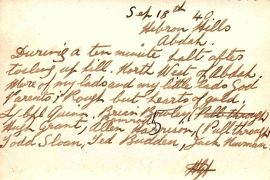 Sep 18th 40
Hebron Hills
Abdah.
During a ten minute halt after
toiling up hill. North West of Abdah.
More of my lads and my little lads God
Parents; Rough but hearts of gold.
L/cpl Quinn. Brian (Pull through)
Hugh Grant, Allen (Pull through)
Todd Sloan, Ted Budden, Jack Newman.